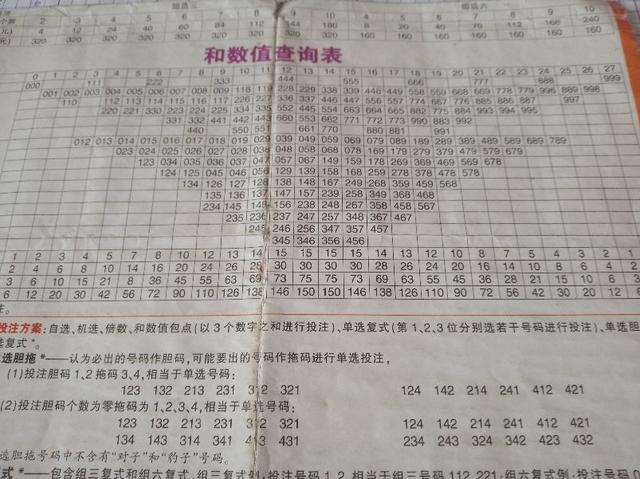 组选六
个数 2 3 4 5 6 7 8 9 4 5 6 7 8 9 10
元) 4 12 24 40 60 84 112 144 180 8 20 40 70 112 168 240
元) 320 320 320 320 320 320 320 320 320 160 160 160 160 160 160 160
和数值查询表
0 1 2 3 4 5 6 7 8 9 10 11 12 13 14 15 16 17 18 19 20 21 22 23 24 25 26 27
000 111 222 333 444 555 666 777 888 999
001 002 003 004 005 006 007 008 009 118 119 228 229 338 339 448 449 558 559 668 669 778 779 889 899 998
110 112 113 114 115 116 117 226 227 336 337 446 447 556 557 774 667 776 885 886 887 997
220 221 330 223 224 225 334 335 552 445 554 663 664 665 882 775 884 993 994 995
331 332 441 442 443 660 553 662 771 772 773 990 883 992
440 550 551 661 770 880 881 991
012 013 014 015 016 017 018 019 029 039 049 059 069 079 089 189 289 389 489 589 689 789
023 024 025 026 027 028 038 048 058 068 078 169 179 279 379 479 579 679
123 034 035 036 037 047 057 067 149 159 178 269 369 469 569 678
124 125 045 046 056 129 139 158 168 259 278 378 478 578
134 126 127 128 138 148 167 249 268 359 459 568
135 136 137 147 157 239 258 349 368 468
234 145 146 156 238 248 267 358 458 567
235 236 237 247 257 348 367 467
245 246 256 347 357 457
345 346 356 456
1 2 3 4 5 7 8 10 12 13 14 15 15 15 15 14 13 12 10 8 7 5 4 3 2 1
2 4 6 8 10 14 16 20 24 26 28 30 30 30 30 28 26 24 20 16 14 10 8 6 4 2
3 6 10 15 21 28 36 45 55 63 69 73 75 75 73 69 63 55 45 36 28 21 15 10 6 3
6 12 20 30 42 56 72 90 110 126 138 146 150 150 146 138 126 110 90 72 56 42 30 20 12 6
投注方案:自选、机选、倍数、和数值包点(以3个数字之和进行投注)、单选复式(第1、2、3位分别选若干号码进行投注)、单选胆
选复式*。
选胆拖*——认为必出的号码作胆码,可能要出的号码作拖码进行单选投注,
(1)投注胆码1、2拖码3、4,相当于单选号码:
123 132 213 231 312 321 124 142 214 241 412 421
(2)投注胆码个数为零拖码为1、2、3、4,相当于单选号码:
123 132 213 231 312 321 124 142 214 241 412 421
134 143 314 341 413 431 234 243 324 342 423 432
选胆拖号码中不含有“对子”和“豹子”号码。
式*——包含组三复式和组六复式,组三复式例:投注号码1、2,相当于组三号码112、221;组六复式例:投注号码0